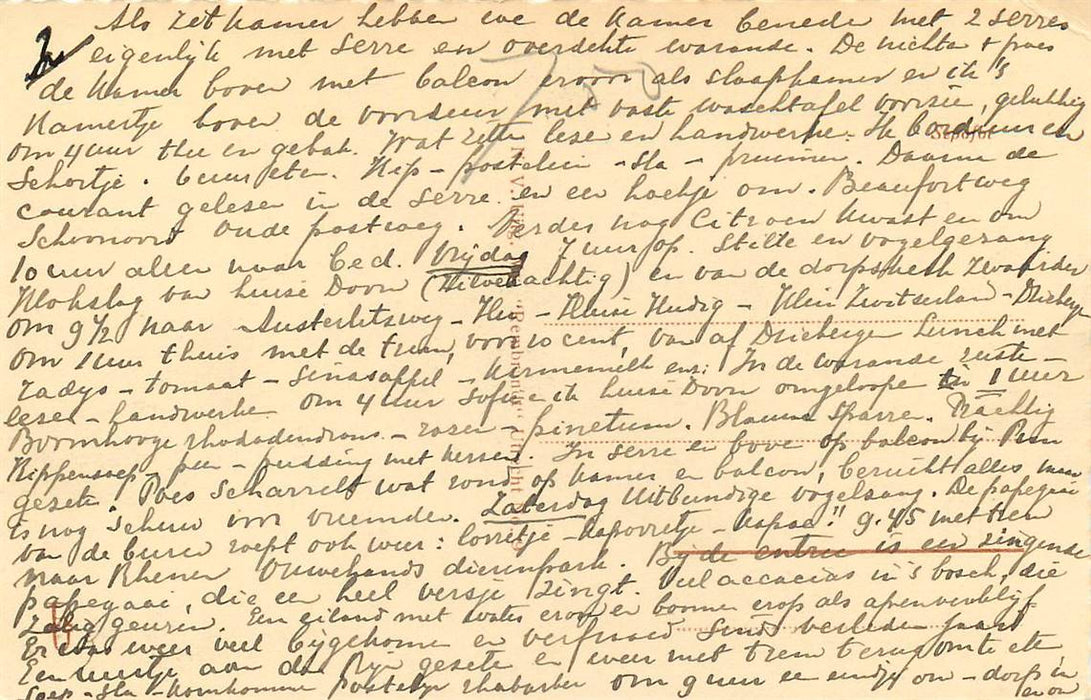 Als zitkamer hebben we de kamer beneden met 2 serres
2/ eigenlijk met serre en overdekte warande. De nichten + poes
de kamer boven met balcon ervoor als slaapkamer en ik 's
kamertje boven de voordeur, met vaste waschtafel voorzien, gelukkig
om 4 uur thee en gebak. Wat zitten lezen en handwerken. Ik borduur een
schortje. 6 uur eten. Kip - postelein - sla - pruimen. Daarna de
courant gelezen in de serre en een hoekje om. Beaufortweg
Schoonoord oude postweg. Verder nog Citroen Kwast en om
10 uur allen naar bed. Vrijdag 7 uur op. Stilte en vogelgezang
Klokslag van huise Doorn ( ) en van de dorpskerk zwaarder
om 9½ naar Austerlitzweg - - Huise Hudig - Klein Zwitserland - Driebergen
om 1 uur thuis met de tram, voor 10 cent, van af Driebergen Lunch met
radys - tomaat - sinasappel - karnemelk enz. In de warande rusten -
lezen - handwerken. Om 4 uur Sofie en ik huise Doorn omgeloopen in 1 uur
Boomhooge rhododendrons - rozen - pinetum. Blauwe Sparren. Prachtig
Kippensoep - peen - pudding met kersen. In serre en boven op balcon bij
gezeten. Poes scharrelt wat rond op kamer en balcon, beruikt alles, maar
is nog schuw voor vreemden. Zaterdag Uitbundige vogelzang. De papegaai
van de buren roept ook weer: lorretje - kaporretje - kapaa!! 9.45 met tram
naar Rhenen Ouwehands dierenpark. Bij de entree is een zingende
papegaai, die een heel versje zingt. Veel accacias in 't bosch, die
zalig geuren. Een eiland met water erom en boomen erop als apenverblijf
Er was weer veel bijgekomen en verfraaid sinds verleden jaar
Een uurtje aan de Rijn gezeten en weer met tram terug om te eten
Soep - sla - komkommer postelijn rhabarber om 9 uur een eindje om - dorp in